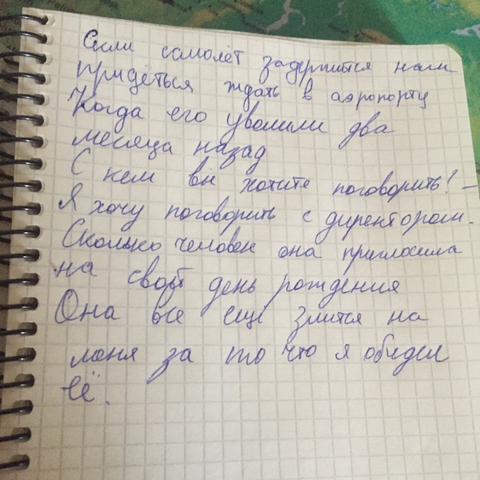 Если самолёт задержится нам
придёться ждать в аэропорту
Когда его уволили два
месяца назад
С кем вы хотите поговорить? –
Я хочу поговорить с директором.
Сколько человек она пригласила
на свой день рождения
Она все ещё злится на
меня за то что я обидел
её.